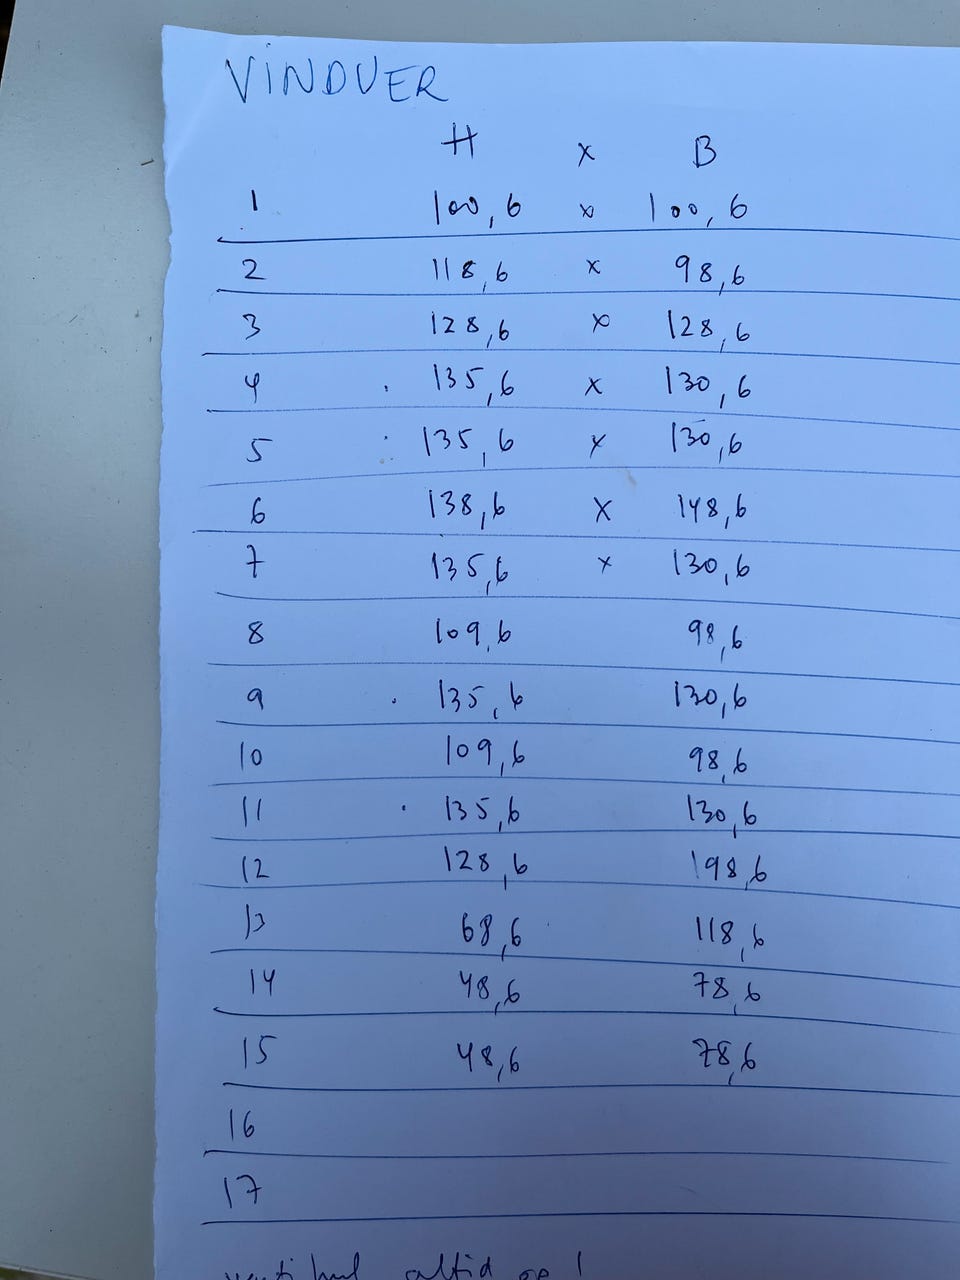 VINDUER
H x B
1 100,6 x 100,6
2 118,6 x 98,6
3 128,6 x 128,6
4 135,6 x 130,6
5 135,6 x 130,6
6 138,6 x 148,6
7 135,6 x 130,6
8 109,6 98,6
9 135,6 130,6
10 109,6 98,6
11 135,6 130,6
12 128,6 198,6
13 68,6 118,6
14 48,6 78,6
15 48,6 78,6
16
17
altid op !